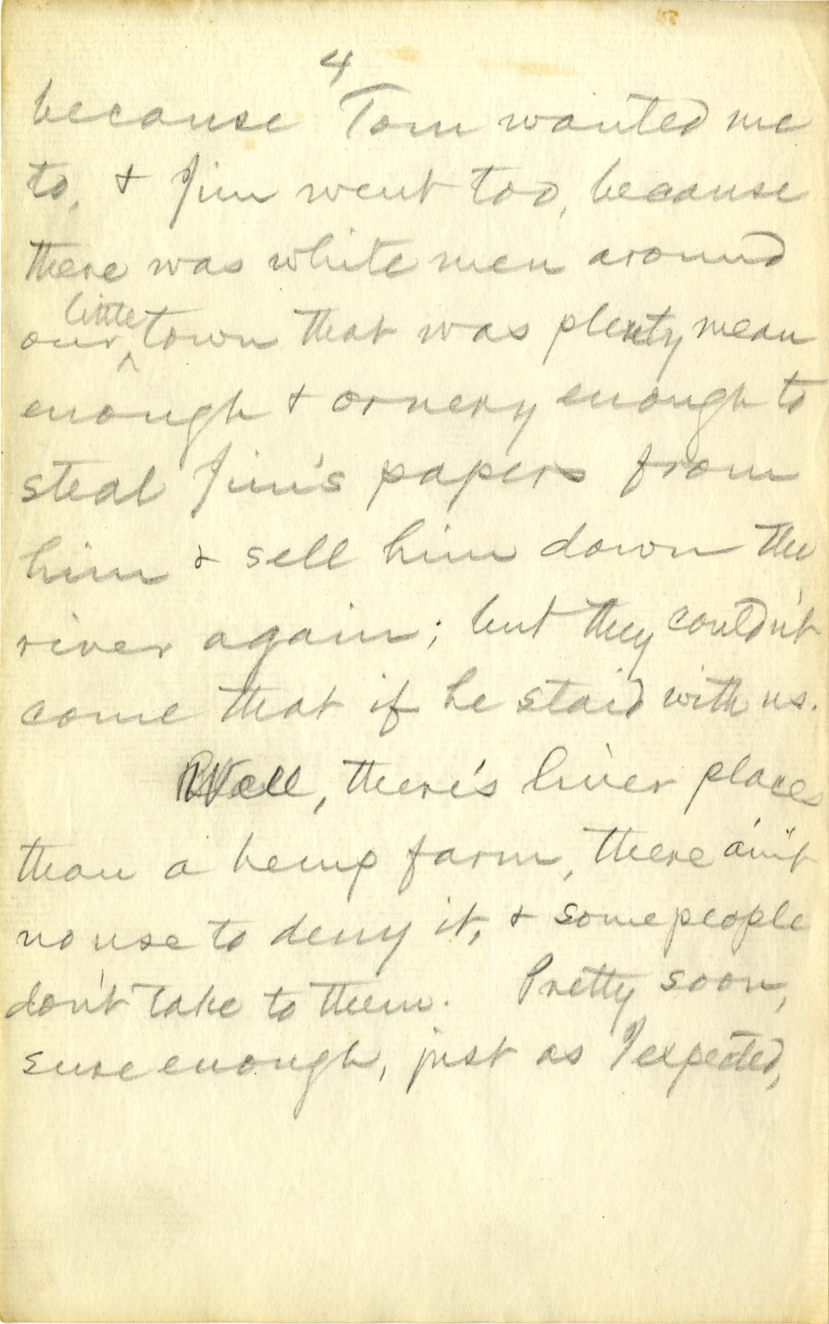 4
because Tom wanted me
to, & Jim went too, because
there was white men around
our little town that was plenty mean
enough & ornery enough to
steal Jim's papers from
him & sell him down the
river again; but they couldn't
come that if he staid with us.
Well, there's liver places
than a hemp farm, there ain't
no use to deny it, & some people
don't take to them. Pretty soon,
sure enough, just as I expected,